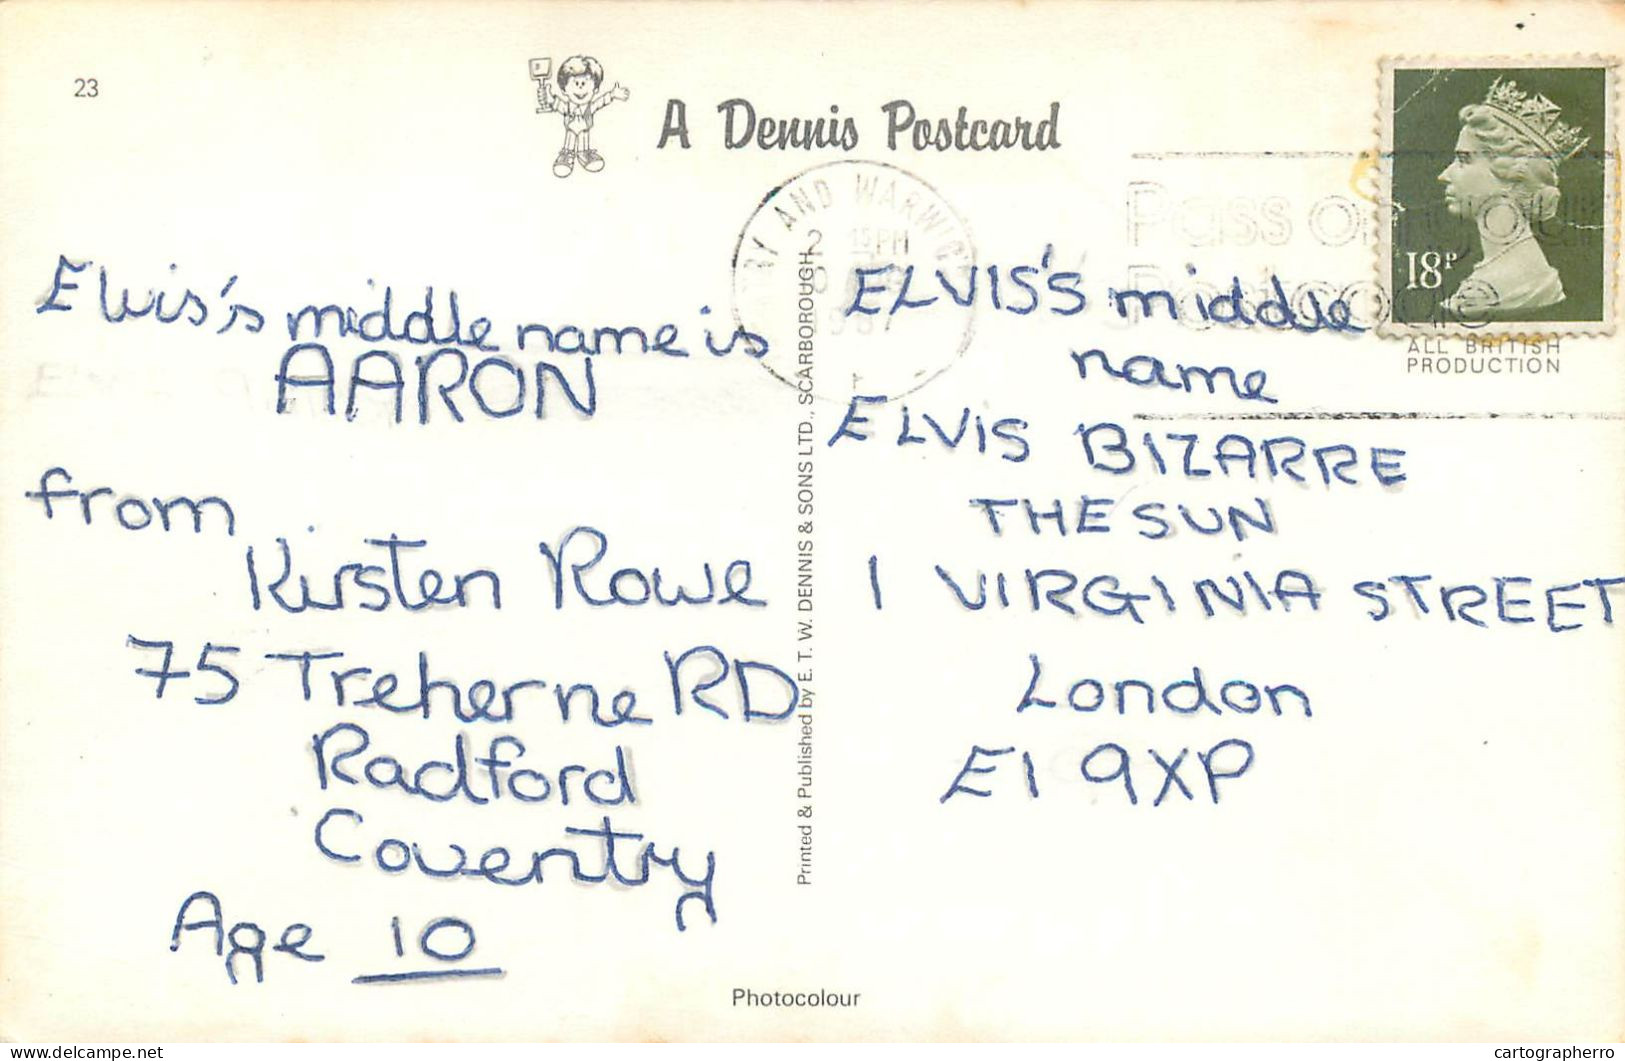 23
A Dennis Postcard
AND WARWICK
2 15PM
1987
Pass on your
Postcode
18P
ALL BRITISH
PRODUCTION
Elvis's middle name is
AARON
from
Kirsten Rowe
75 Treherne RD
Radford
Coventry
Age 10
Printed & Published by E. T. W. DENNIS & SONS LTD., SCARBOROUGH
ELVIS'S middle
name
ELVIS BIZARRE
THE SUN
1 VIRGINIA STREET
London
E1 9XP
Photocolour
delcampe.net
cartographerro